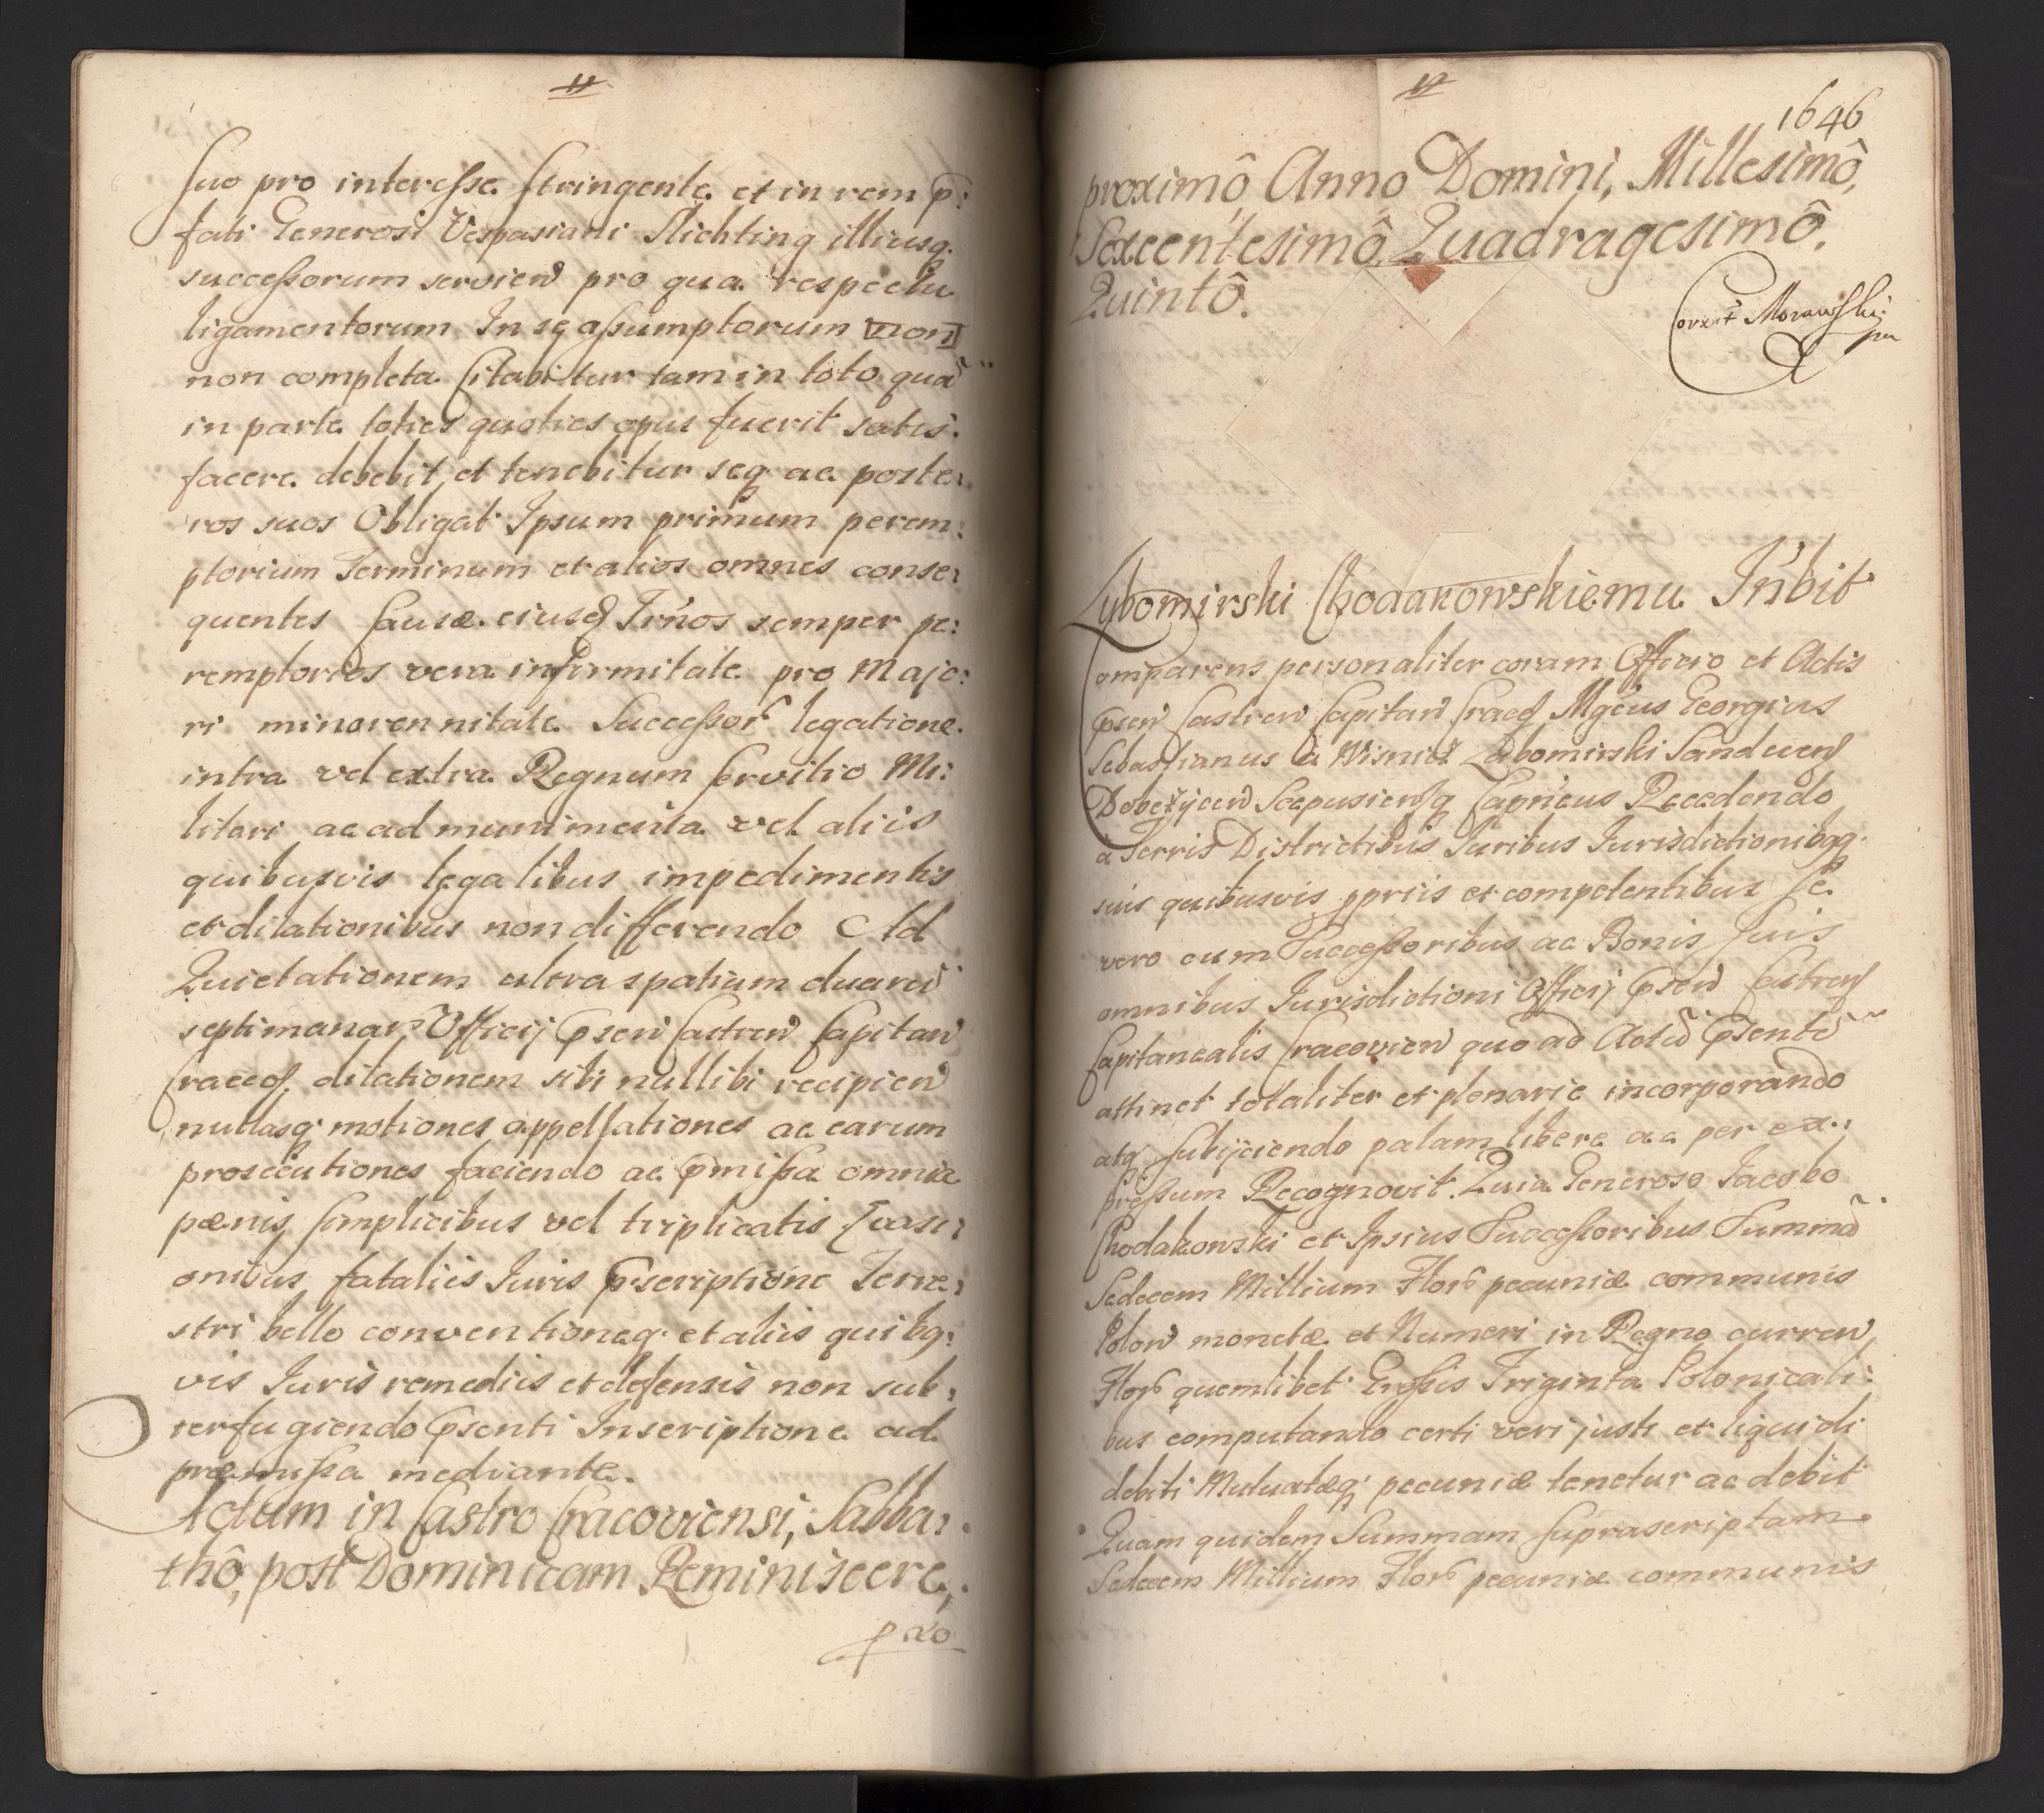 11
suo pro interesse stringente et in rem p:
fati Generosi Vespasiani Slichting illiusq
successorum servien pro qua respectu
ligamentorum In se assumptorum non
non completa Citabitur tam in toto quã
in parte toties quoties opus fuerit satis:
facere debebit et tenebitur seq ac poste:
ros suos Obligat Ipsum primum perem:
ptorium Terminum et alios omnes conse:
quentes Causæ eiusd Trnos semper pe:
remptorios vera infirmitate pro Majo:
ri minorennitate Successor legatione
intra vel extra Regnum servitio Mi:
litari ac ad munimenta vel aliis
quibusvis legalibus impedimentis
et dilationibus non differendo Ad
Quietationem ultra spatium duaru
septimanar Officij psen Castren Capitan
Craco dilationem sibi nullibi recipien
nullasq motiones appellationes ac earum
prosecutiones faciendo ac pmissa omnia
pænis simplicibus vel triplicatis Evasi:
onibus fataliis Iuris pscriptione Terre:
stri bello conventioneq et aliis quibq:
vis Iuris remediis et defensis non sub:
terfugiendo psenti Inscriptione ad
præmissa mediante.
Actum in Castro Cracoviensi, Sabba:
thô, post Dominicam Reminiscere,
pxo
12
1646
proximô Anno Domini, Millesimô,
Sexcentesimô Quadragesimô.
Quintô.
Corexit Morawski
mp
Lybomirski Chodakowskiemu Inbit
Comparens personaliter coram Officio et Actis
psen Castren Capitan Crac Mgcus Georgius
Sebastianus à Wisnicz Lubomirski Sandecen
Dobczycen Scepusiensq Capneus Recedendo
a Terris Districtibus Iuribus Iurisdictionibqq
suis quibusvis ppriis et competentibus Se
vero cum Successoribus ac Bonis suis
omnibus Iurisdictioni Officij psen Castren
Capitanealis Cracovien quo ad Actũ psentẽ
attinet totaliter et plenarie incorporando
atq subijciendo palam libere ac per ex:
pressum Recognovit. Quia Generoso Iacobo
Chodakowski et Ipsius Successoribus Summã
Sedecem Millium Flor pecuniæ communis
Polon monetæ et Numeri in Regno curren
Flor quemlibet Grossis Triginta Polonicali:
bus computando certi veri justi et liquidi
debiti Mutuatæq pecuniæ tenetur ac debit
Quam quidem Summam suprascriptam
Sedecem Millium Flor pecuniæ communis